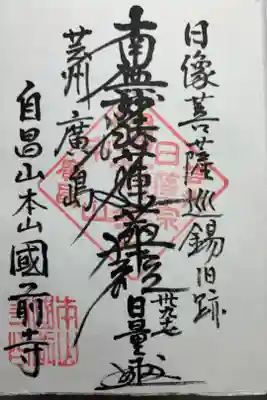 日像菩薩巡錫旧跡
南無妙法蓮華経
日量
藝州廣嶋
自昌山本山國前寺
日蓮宗